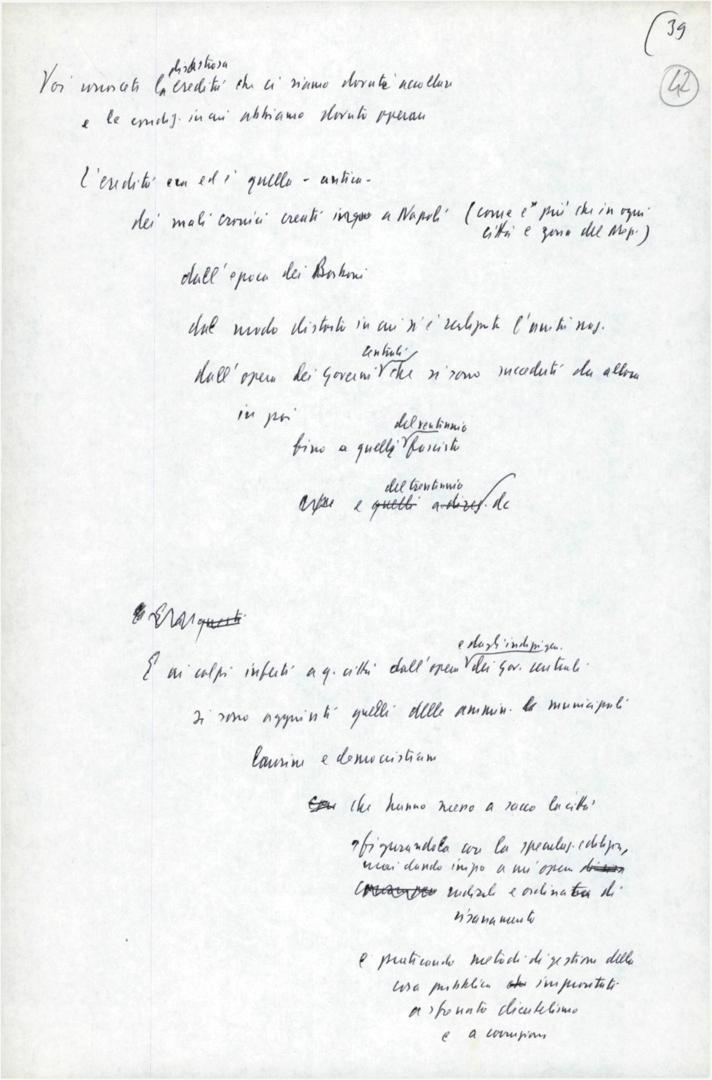 39
42
disastrosa
Voi conoscete la eredità che ci siamo dovuti accollare
e le condiz. in cui abbiamo dovuto operare
L'eredità era ed è quella - antica -
dei mali cronici creati a Napoli (come e più che in ogni
città e zona del Mezz.)
dall'epoca dei Borboni
dal modo distorto in cui si è realizzata l'unità naz.
centrali
dall'opera dei Governi che si sono succeduti da allora
in poi
del ventennio
fino a quelli fascista
del trentennio
e quelli a direz. dc
E questi
e dagli indirizzi
E ai colpi inferti a q. città dall'opera dei Gov. centrali
si sono aggiunti quelli delle ammin. municipali
laurine e democristiane
che hanno messo a sacco la città
sfigurandola con la speculaz. edilizia,
mai dando inizio a un'opera
radicale e ordinata di
risanamento
e praticando metodi di gestione della
cosa pubblica improntati
a sfrenato clientelismo
e a corruzione